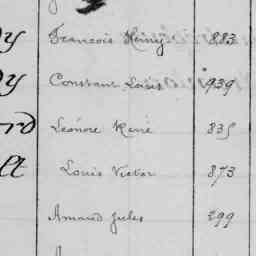 y François Henry 883
y Constant Louis 939
rd Léonore René 835
lt Louis Victor 873
Amand Jules 299